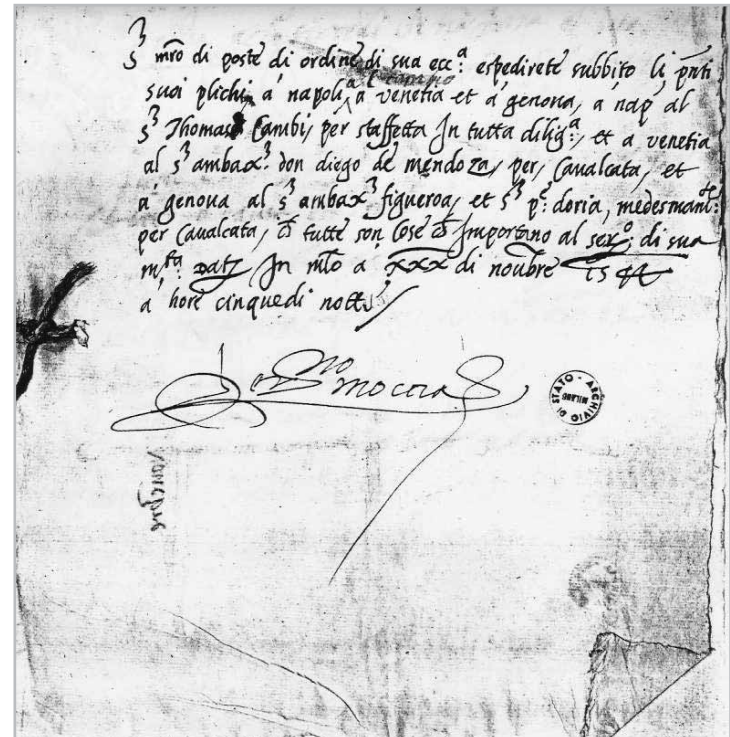 S.r mro di poste di ordine di sua ecc.a espedirete subbito li pnti
al campo
suoi plichi, a napoli, a venetia et a genova, a nap. al
S.r Thomaso Cambi, per staffetta In tutta dilig.a, et a venetia
al s.r ambax.r don diego de mendoza, per, Cavalcata, et
a genova al s.r ambax.r figueroa, et S.r p.e doria, medesmam.te
per Cavalcata, ch tutte son Cose ch Importano al ser.o di sua
m.ta Dat In mlo a xxx di noubre 1544
a hore cinque di notte
moccia
ARCHIVIO DI STATO
MILANO